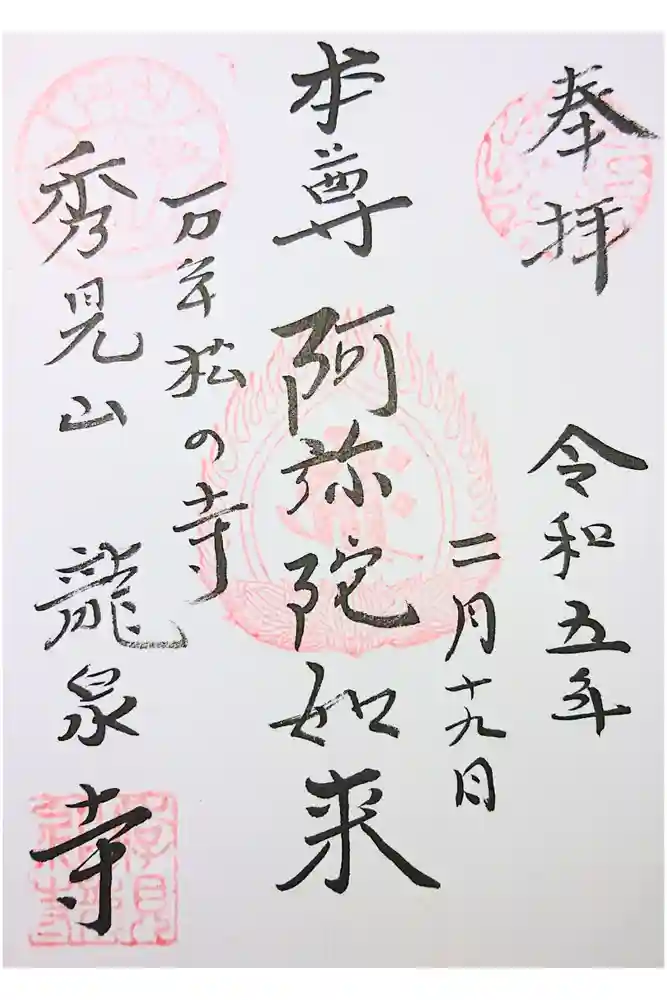 奉拝
令和五年
二月十九日
本尊 阿弥陀如来
万年松の寺
秀見山 龍泉寺